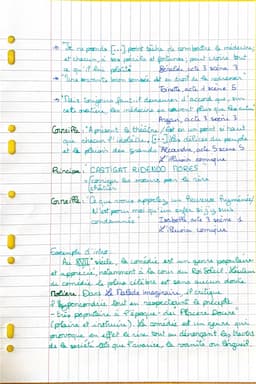 → "Je ne prends [...] point tâche de combattre la médecine;
et chacun, à ses périls et fortune, peut croire tout
ce qu'il lui plaît" Béralde, acte 3 scène 3
→ "Une servante bien sensée est en droit de le redresser"
Toinette, acte 1 scène 5
→ "Mais toujours faut-il demeurer d'accord que, sur
cette matière, les médecins en savent plus que les autres"
Argan, acte 3 scène 3
Corneille: "A présent le théâtre / Est en un point si haut
que chacun l'idolâtre, [...] Les délices du peuple
et le plaisir des grands" Alcandre, acte 5 scène 5
L'Illusion comique
Principe: CASTIGAT RIDENDO MORES
/corriger les moeurs par le rire
châtier
Corneille: "Ce que nous appelons un
N'est parmi qu'un si j'y suis
condamnée" Isabelle, acte 3 scène 1
L'Illusion comique
Exemple d'intro:
Au XVII siècle, la comédie est un genre populaire
et apprécié, notamment à la cour du Roi Soleil. L'auteur
de comédie le plus célèbre est sans aucun doute
Molière. Dans Le Malade imaginaire, il critique
l'hypocondrie tout en respectant le précepte
- très populaire à l'époque - de Placere Docere
(plaire et instruire). La comédie est un genre qui
provoque en effet le rire tout en dénonçant des travers
de la société tels que l'avarice, la vanité ou l'orgueil.